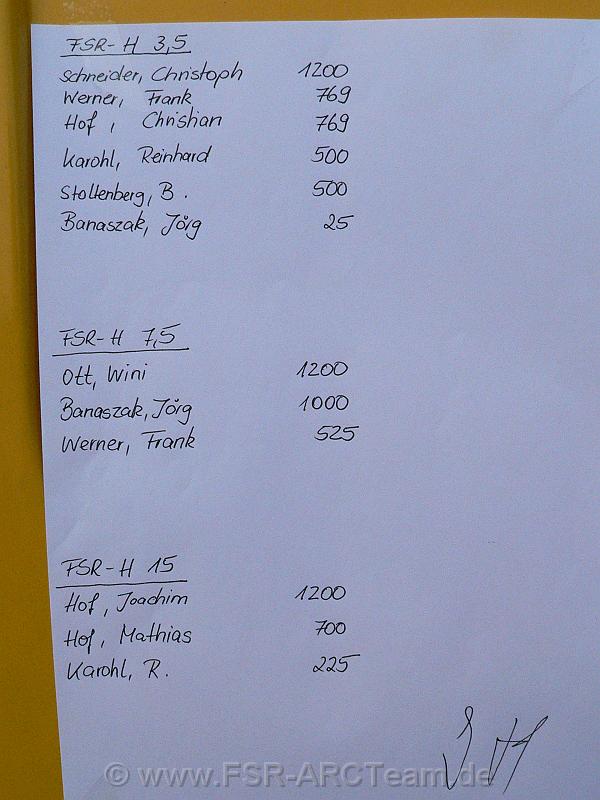 FSR-H 3,5
Schneider, Christoph 1200
Werner, Frank 769
Hof, Christian 769
Karohl, Reinhard 500
Stoltenberg, B. 500
Banaszak, Jörg 25
FSR-H 7,5
Ott, Wini 1200
Banaszak, Jörg 1000
Werner, Frank 525
FSR-H 15
Hof, Joachim 1200
Hof, Mathias 700
Karohl, R. 225
© www.FSR-ARCTeam.de